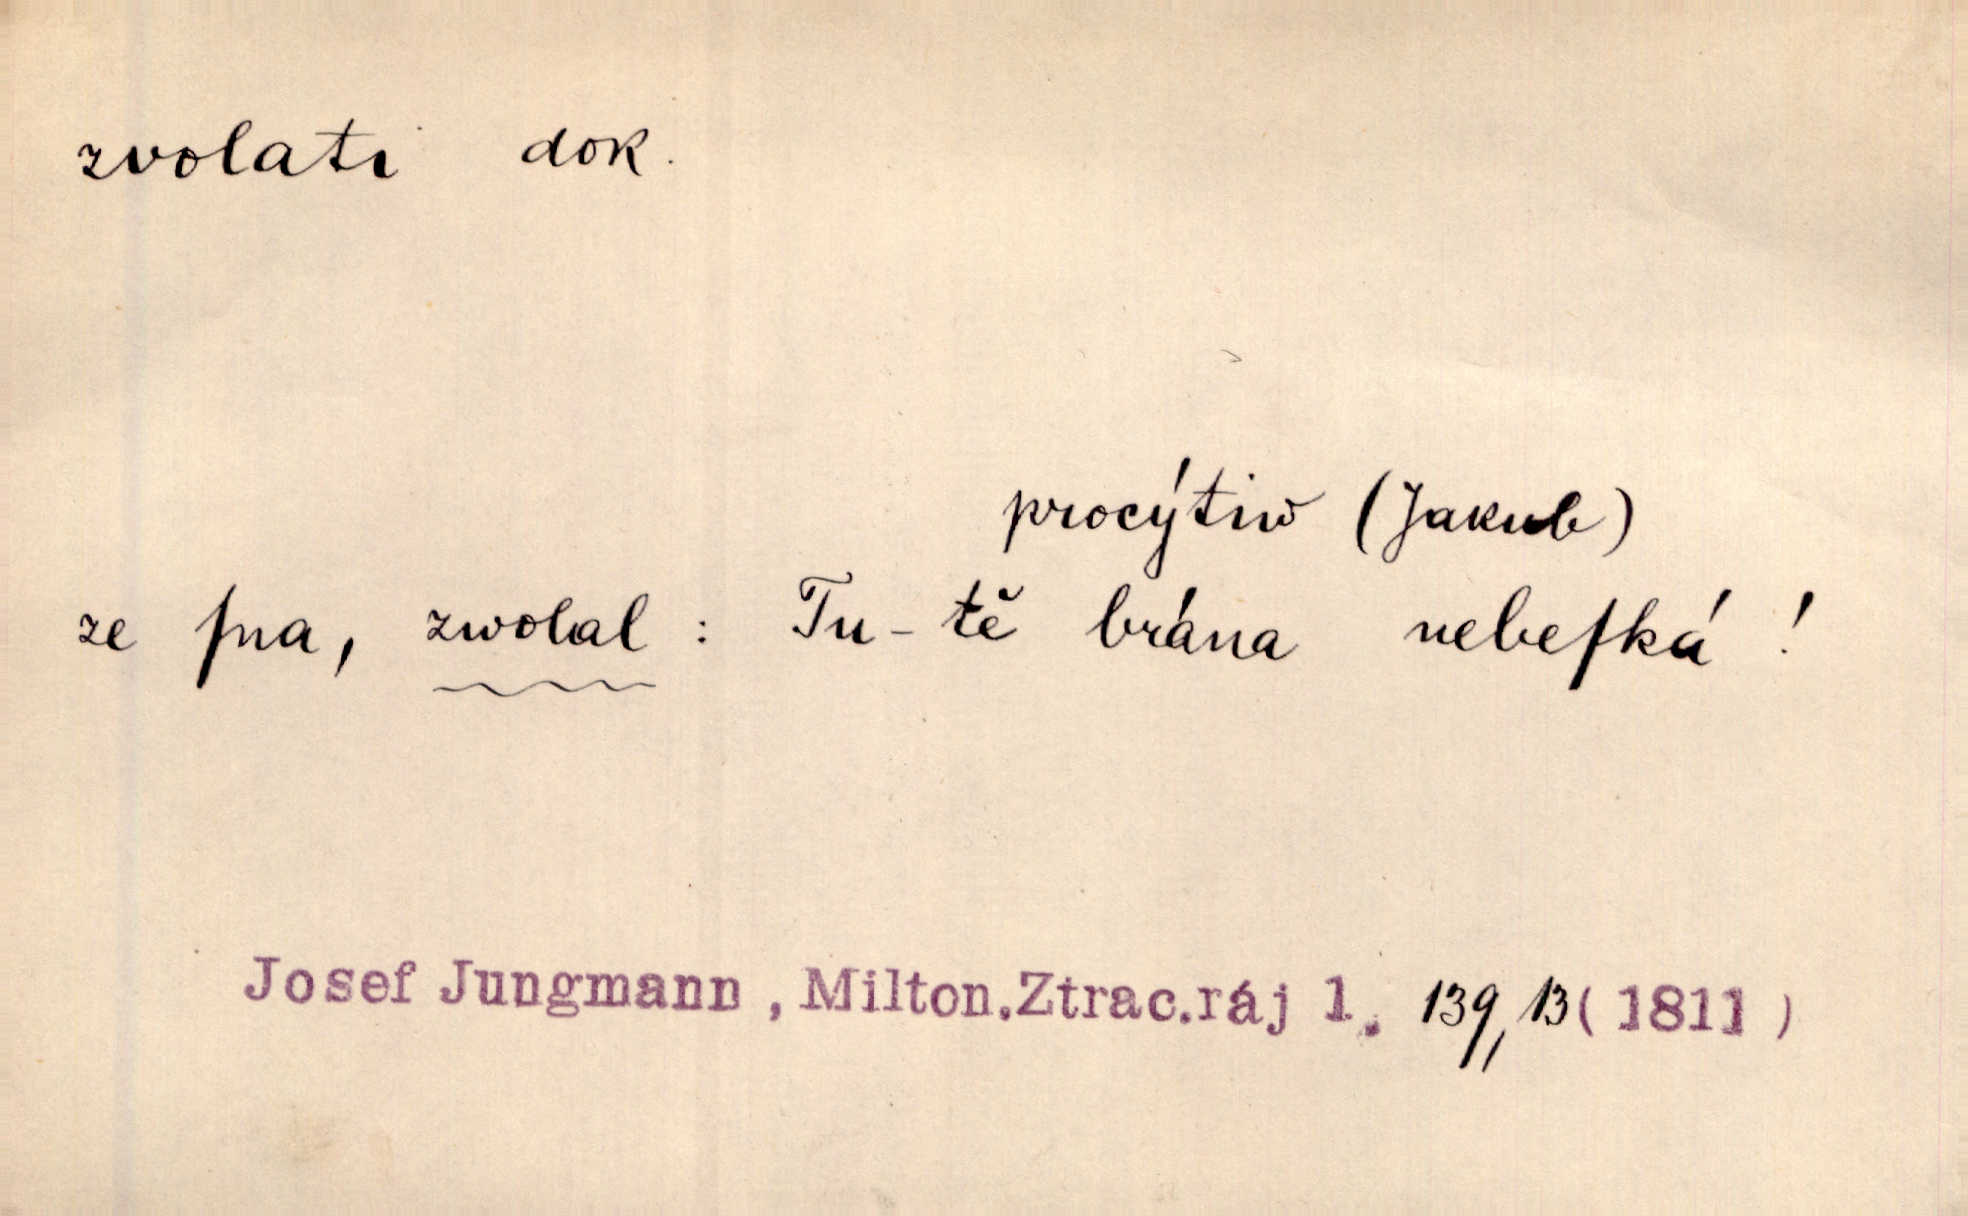 zvolati dok.
procýtiw (Jakub)
ze ſna, zwolal : Tu-tě brána nebeſká !
Josef Jungmann , Milton.Ztrac.ráj 1. 139,13 ( 1811 )